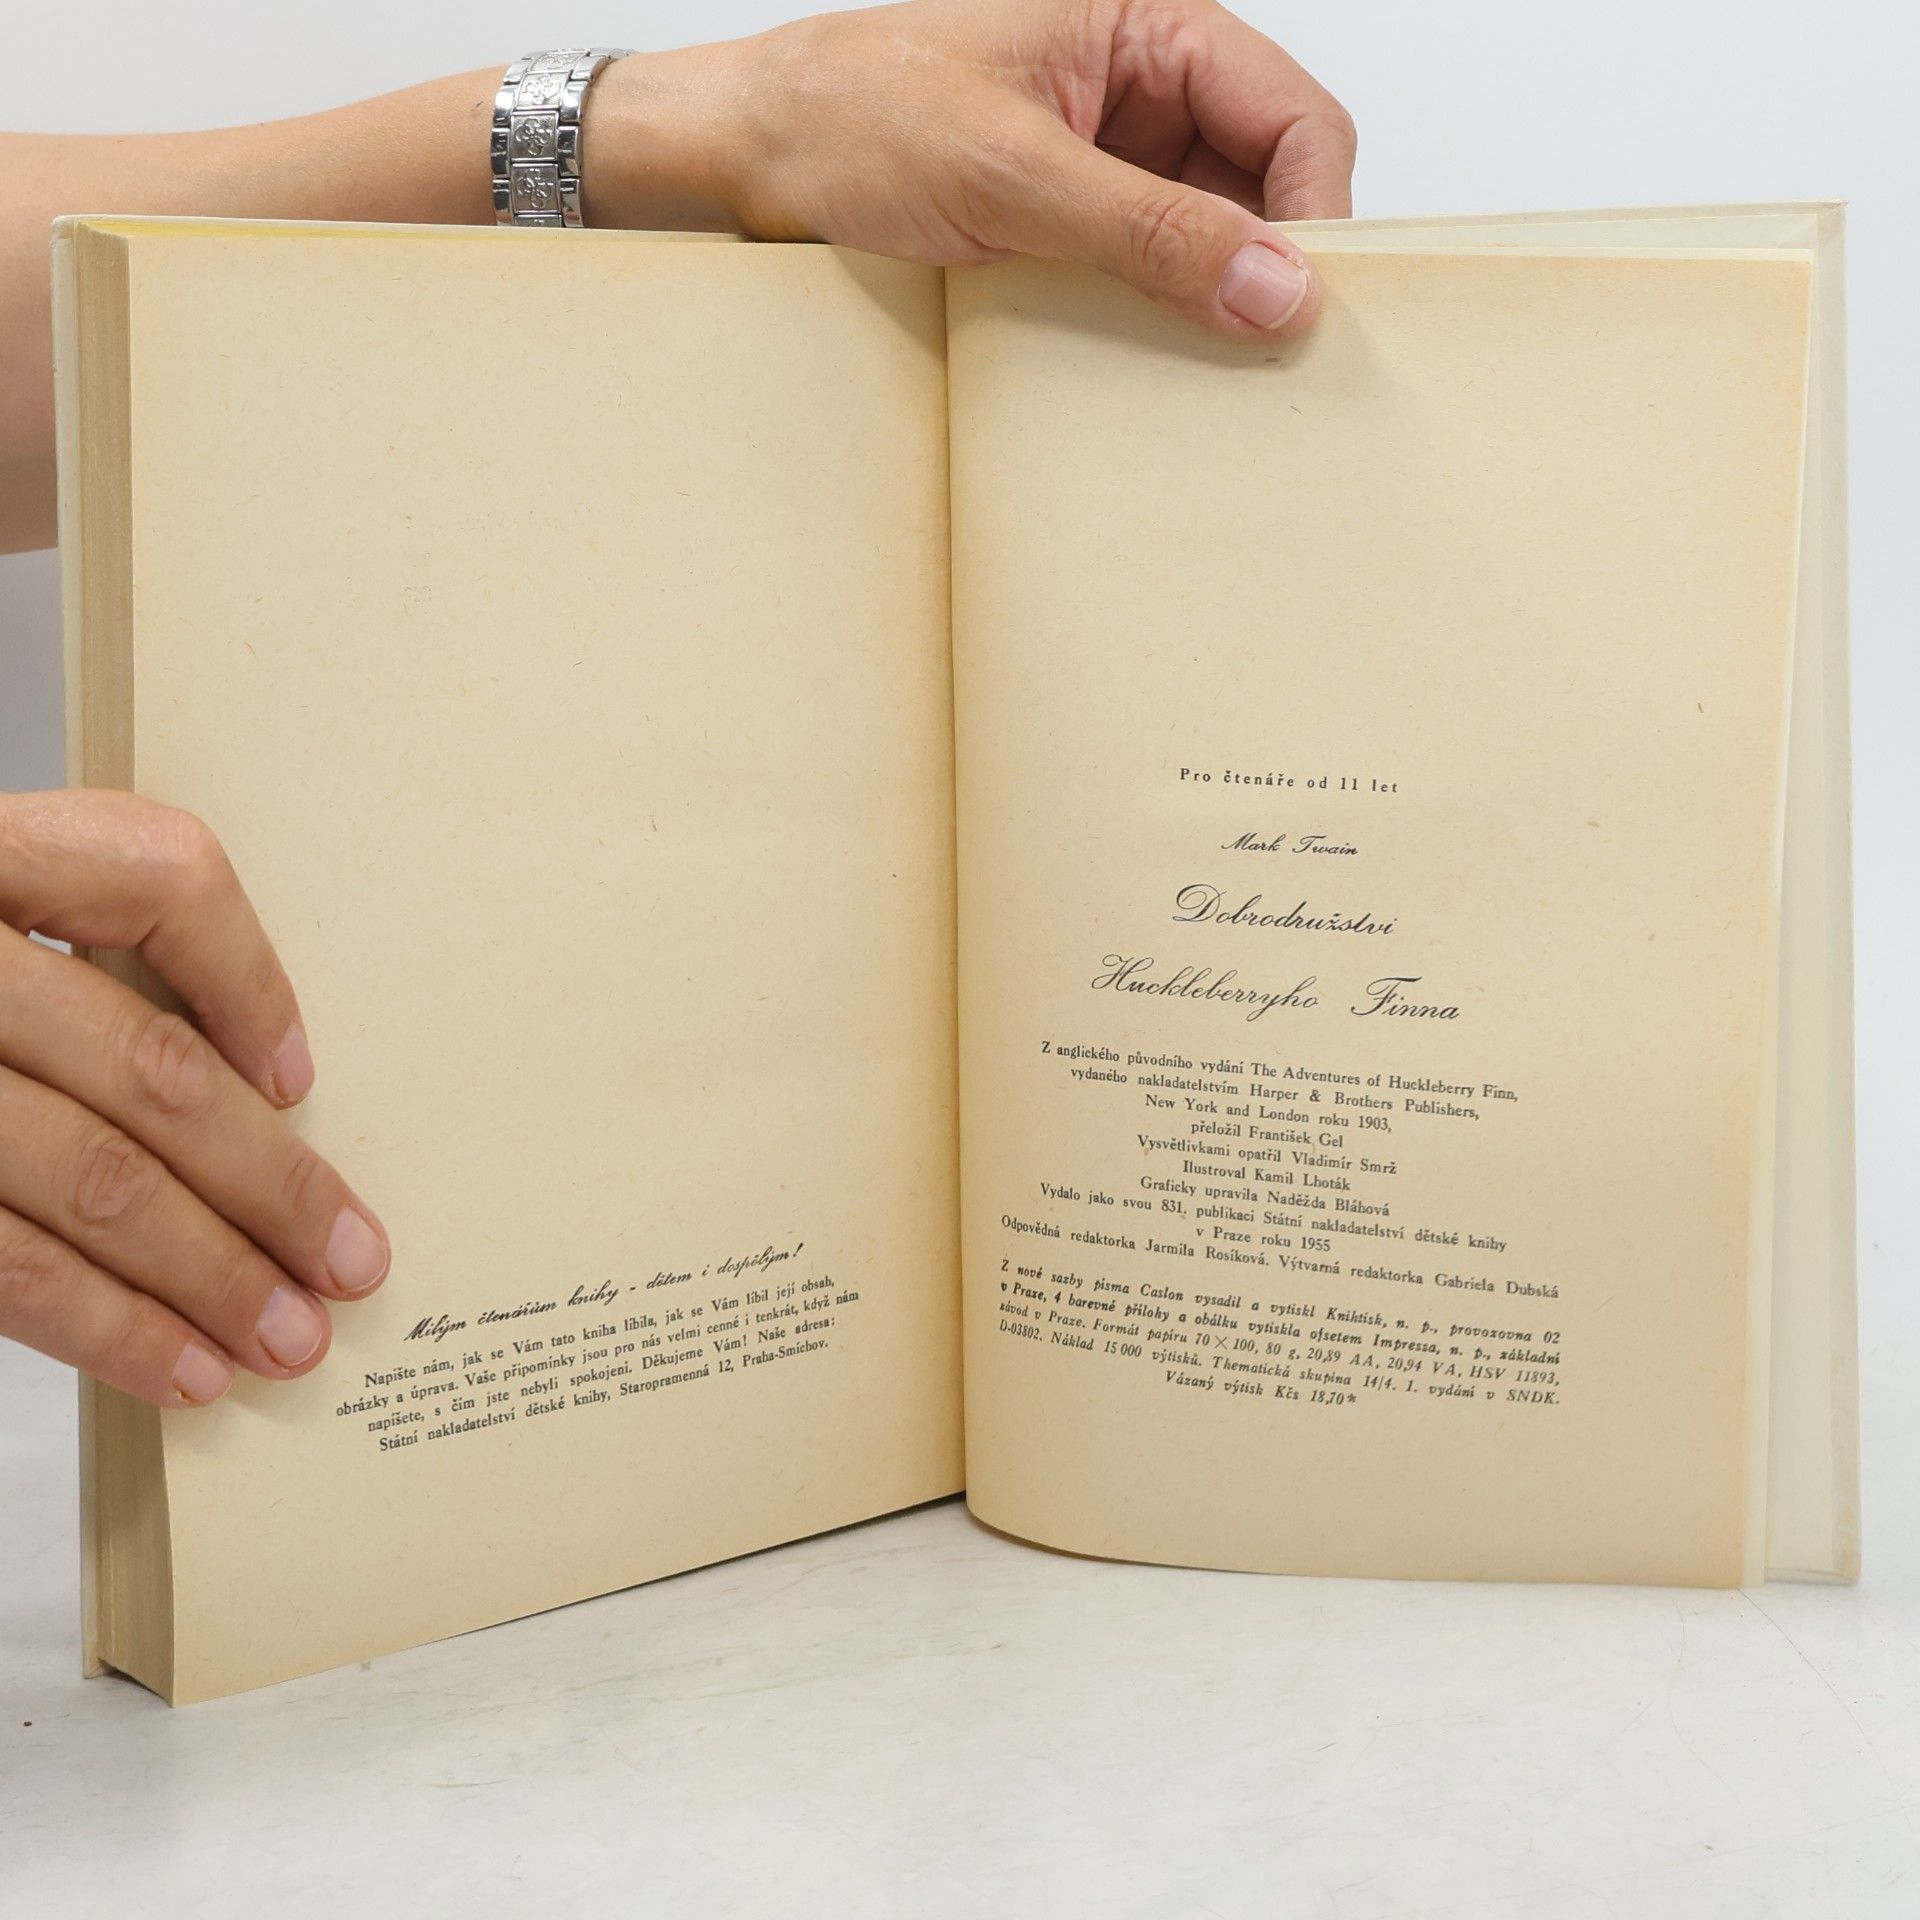 Milým čtenářům knihy - dětem i dospělým!
Napište nám, jak se Vám tato kniha líbila, jak se Vám líbil její obsah,
obrázky a úprava. Vaše připomínky jsou pro nás velmi cenné i tenkrát, když nám
napíšete, s čím jste nebyli spokojeni. Děkujeme Vám! Naše adresa:
Státní nakladatelství dětské knihy, Staropramenná 12, Praha-Smíchov.
Pro čtenáře od 11 let
Mark Twain
Dobrodružství
Huckleberryho Finna
Z anglického původního vydání The Adventures of Huckleberry Finn,
vydaného nakladatelstvím Harper & Brothers Publishers,
New York and London roku 1903,
přeložil František Gel
Vysvětlivkami opatřil Vladimír Smrž
Ilustroval Kamil Lhoták
Graficky upravila Naděžda Bláhová
Vydalo jako svou 831. publikaci Státní nakladatelství dětské knihy
v Praze roku 1955
Odpovědná redaktorka Jarmila Rosíková. Výtvarná redaktorka Gabriela Dubská
Z nové sazby písma Caslon vysadil a vytiskl Knihtisk, n. p., provozovna 02
v Praze, 4 barevné přílohy a obálku vytiskla ofsetem Impressa, n. p., základní
závod v Praze. Formát papíru 70 × 100, 80 g, 20,89 AA, 20,94 VA, HSV 11893,
D-03802. Náklad 15 000 výtisků. Thematická skupina 14/4. 1. vydání v SNDK.
Vázaný výtisk Kčs 18,70*